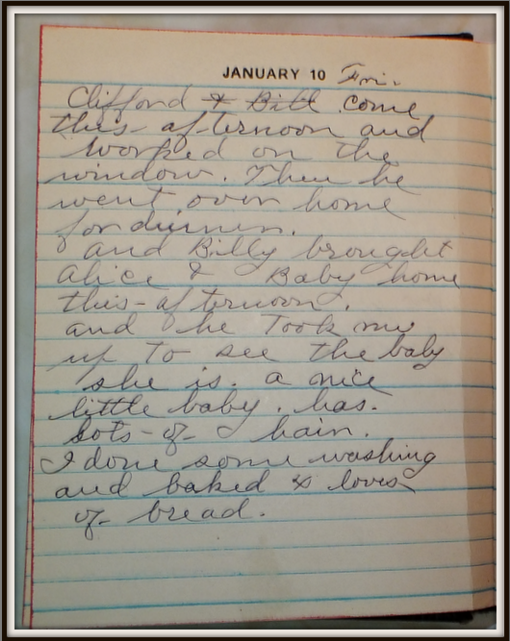 JANUARY 10 Fri.
Clifford & Bill come
this-afternoon and
worked on the
window. Then he
went over home
for dinner.
and Billy brought
Alice & Baby home
this-afternoon.
and he Took me
up To see the baby
she is. a nice
little baby. has.
lots-of- hair.
I done some washing
and baked loves
of- bread.